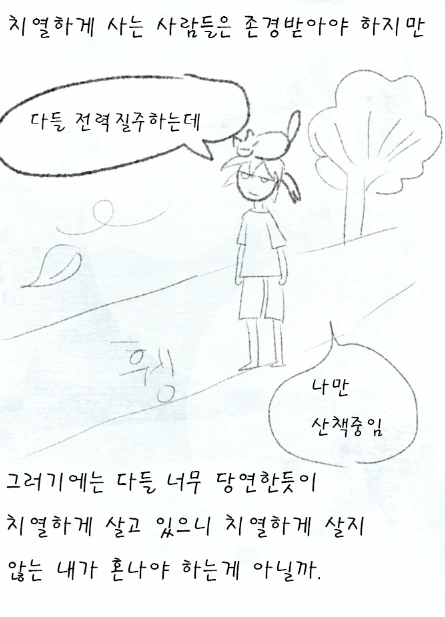 치열하게 사는 사람들은 존경받아야 하지만
다들 전력질주하는데
휘잉
나만
산책중임
그러기에는 다들 너무 당연한듯이
치열하게 살고 있으니 치열하게 살지
않는 내가 혼나야 하는게 아닐까.